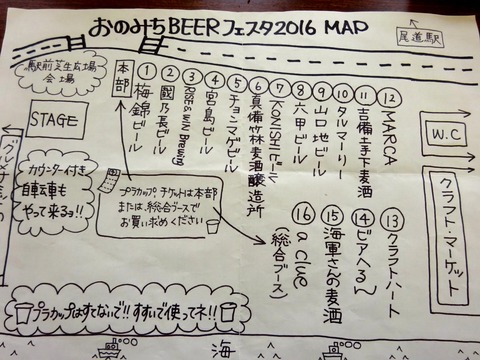 おのみちBEERフェスタ2016 MAP
尾道駅
駅前芝生広場
会場
本部
① 梅錦ビール
② 國乃長ビール
③ RISE & WIN Brewing
④ 宮島ビール
⑤ チョンマゲビール
⑥ 真備竹林麦酒醸造所
⑦ KONISHIビール
⑧ 六甲ビール
⑨ 山口地ビール
⑩ タルマーリー
⑪ 吉備土手下麦酒
⑫ MARCA
W.C
STAGE
カウンター付き
自転車も
やって来るっ!!
プラカップ、チケットは本部
または、総合ブースで
お買い求めください
⑯ a clue
(総合ブース)
⑮ 海軍さんの麦酒
⑭ ビアへるん
⑬ クラフトハート
クラフト・マーケット
プラカップはすてないで!! すすいで使ってネ!!
海